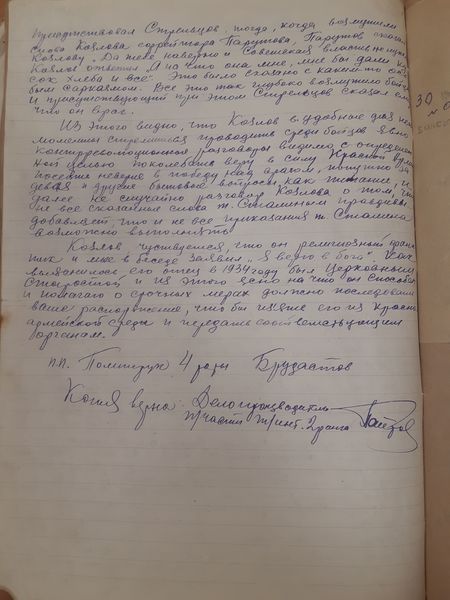 присутствовал Стрельцов, тогда, когда возмутили
слова Козлова ефрейтора Парутова, Парутов сказал
Козлову „Да тебе наверно и Советская власть не нужна"
Козлов ответил „А на что она мне, мне бы дали ку-
сок хлеба и все". Это было сказано с каким-то
сарказмом. Все это так глубоко возмутило бойцов
и присутствующий при этом Стрельцов сказал ему
что он враг.
Из этого видно, что Козлов в удобные для него
моменты стремится проводить среди бойцов явно
контрреволюционные разговоры видимо с определен-
ной целью поколебать веру в силу Красной Армии
посеять неверие в победу над врагом, попутно за-
девая и другие бытовые вопросы как питание, и
далее не случайно разговор Козлова о том, что
не все сказанные слова т. Сталиным правдивы
добавляет что и не все приказания т. Сталина
возможно выполнить.
Козлов чувствуется, что он религиозный
и мне в беседе заявил „я верю в бога". Как
выяснилось его отец в 1934 году был церковным
старостой и из этого ясно на что он способен
и полагаю о срочных мерах должно последовать
ваше распоряжение, что бы изъять его из Красно-
армейской среды и передать соответствующим
органам.
п.п. Политрук 4 роты Брудастов
Копия верна: Делопроизводитель
30